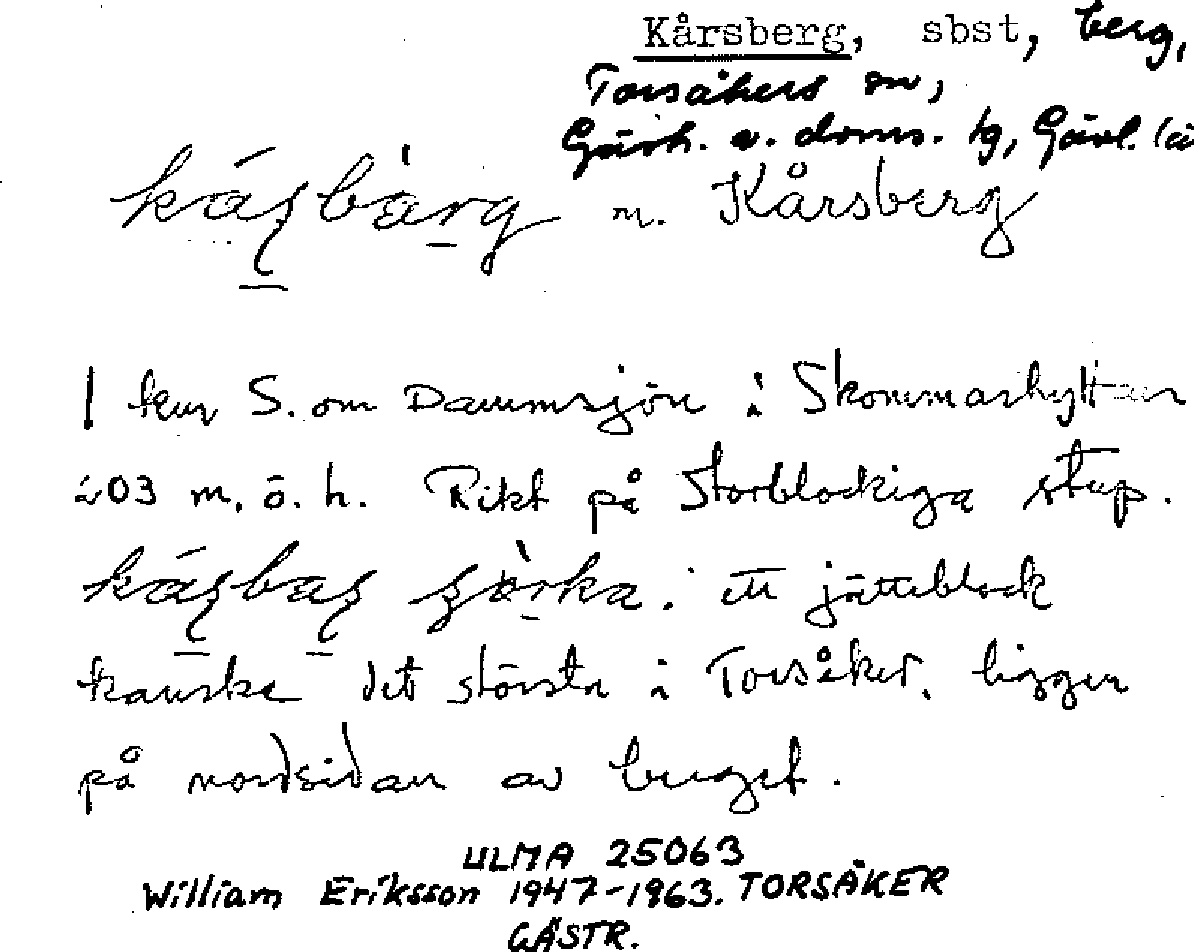 Kårsberg, sbst, berg,
Torsåkers sn,
Gästr. ö. doms. tg, Gävl. lä
kás̱bàrg m. Kårsberg
1 km S. om Dammsjön i Skommarhyttan
203 m. ö. h. Rikt på storblockiga stup.
ett jätteblock
kanske det största i Torsåker, ligger
på nordsidan av berget.
ULMA 25063
William Eriksson 1947-1963. TORSÅKER
GÄSTR.